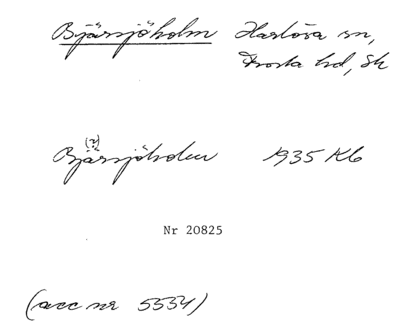 Bjärsjöholm Harlösa sn,
Frosta hd, Sk
(?)
Bjärsjöholm 1935 Kb
Nr 20825
(acc nr 5534)